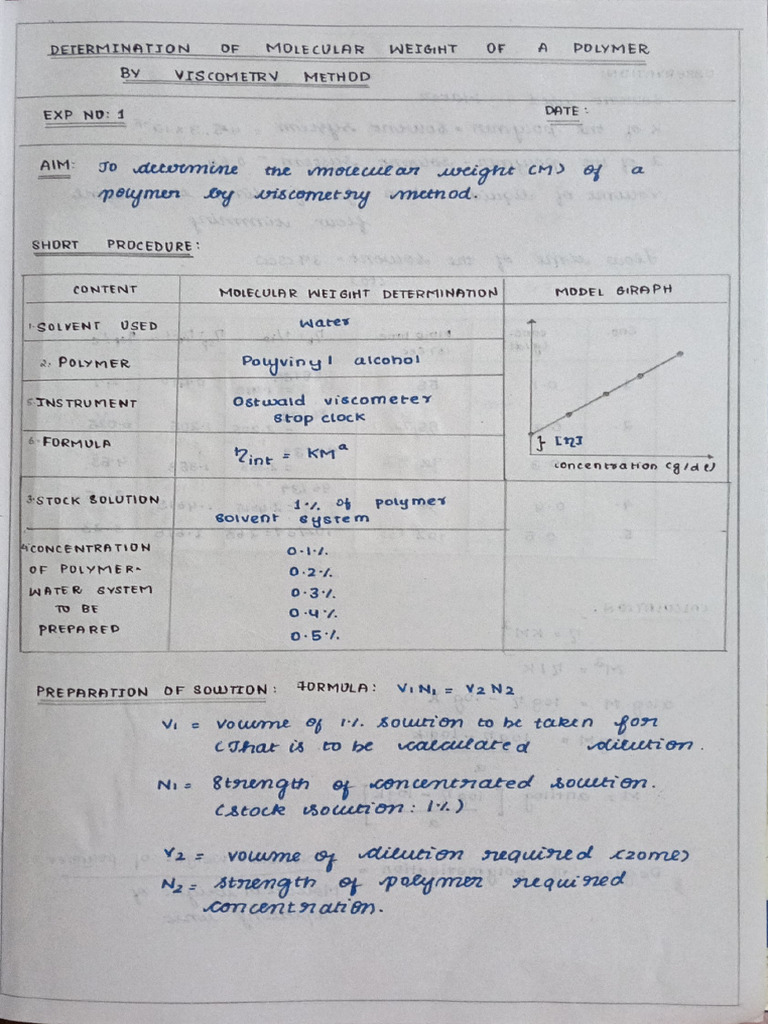 DETERMINATION OF MOLECULAR WEIGHT OF A POLYMER
BY VISCOMETRY METHOD
EXP NO: 1 DATE:
AIM: To determine the molecular weight (M) of a
polymer by viscometry method.
SHORT PROCEDURE:
CONTENT MOLECULAR WEIGHT DETERMINATION MODEL GRAPH
1. SOLVENT USED Water
2. POLYMER Polyvinyl alcohol
5. INSTRUMENT Ostwald viscometer
stop clock
6. FORMULA
ηint = KMᵃ
} [η]
concentration (g/dl)
3. STOCK SOLUTION 1% of polymer
solvent system
4. CONCENTRATION
OF POLYMER-
WATER SYSTEM
TO BE
PREPARED
0.1%
0.2%
0.3%
0.4%
0.5%
PREPARATION OF SOLUTION: FORMULA: V1N1 = V2N2
V1 = volume of 1% solution to be taken for
(That is to be calculated dilution.
N1 = Strength of concentrated solution.
(stock solution: 1%)
V2 = volume of dilution required (20ml)
N2 = strength of polymer required
concentration.